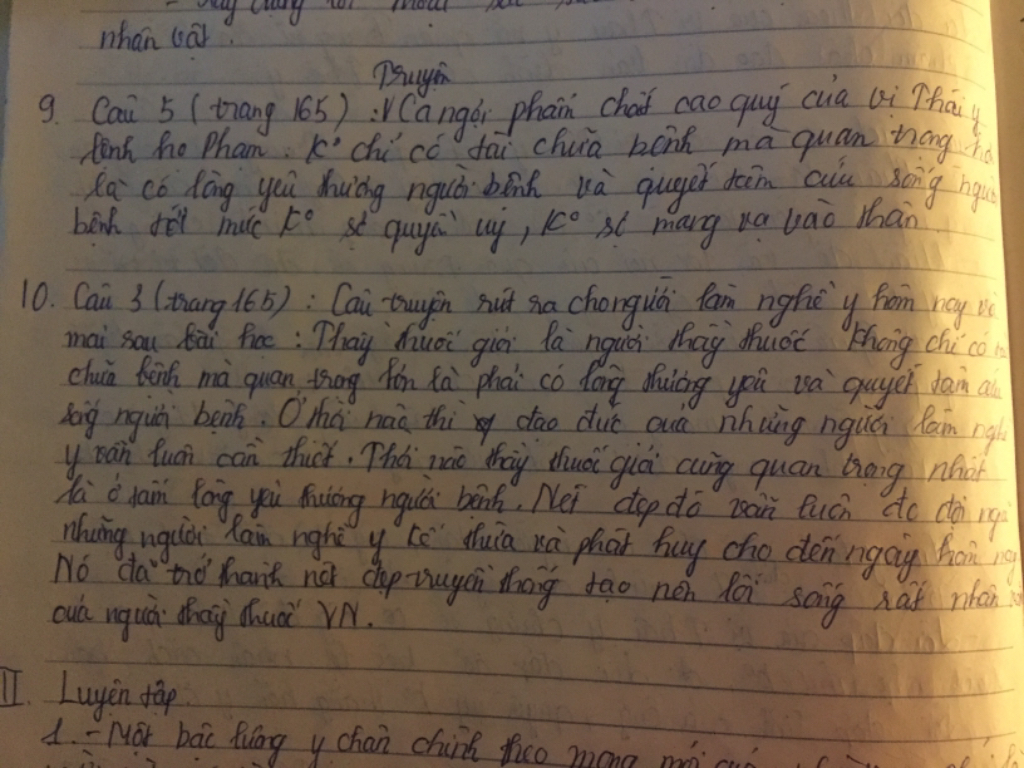 nhân vật.
Truyện
9. Câu 5 (trang 165) : Ca ngợi phẩm chất cao quý của vị Thái y
lệnh họ Phạm. K° chỉ có tài chữa bệnh mà quan trọng
là có lòng yêu thương người bệnh và quyết tâm cứu sống người
bệnh tới mức K° sợ quyền uy, K° sợ mang vạ vào thân
10. Câu 3 (trang 165) : Câu truyện rút ra cho người làm nghề y hôm nay và
mai sau bài học : Thầy thuốc giỏi là người thầy thuốc không chỉ có
chữa bệnh mà quan trọng hơn là phải có lòng thương yêu và quyết tâm cứu
sống người bệnh. Ở thời nào thì đạo đức của những người làm nghề
y vẫn luôn cần thiết. Thời nào thầy thuốc giỏi cũng quan trọng nhất
là ở tấm lòng yêu thương người bệnh. Nét đẹp đó vẫn luôn đc đội ngũ
những người làm nghề y kế thừa và phát huy cho đến ngày hôm nay
Nó đã trở thành nét đẹp truyền thống tạo nên lối sống rất nhân
của người thầy thuốc VN.
II. Luyện tập
1. - Một bậc lương y chân chính theo mong mỏi của